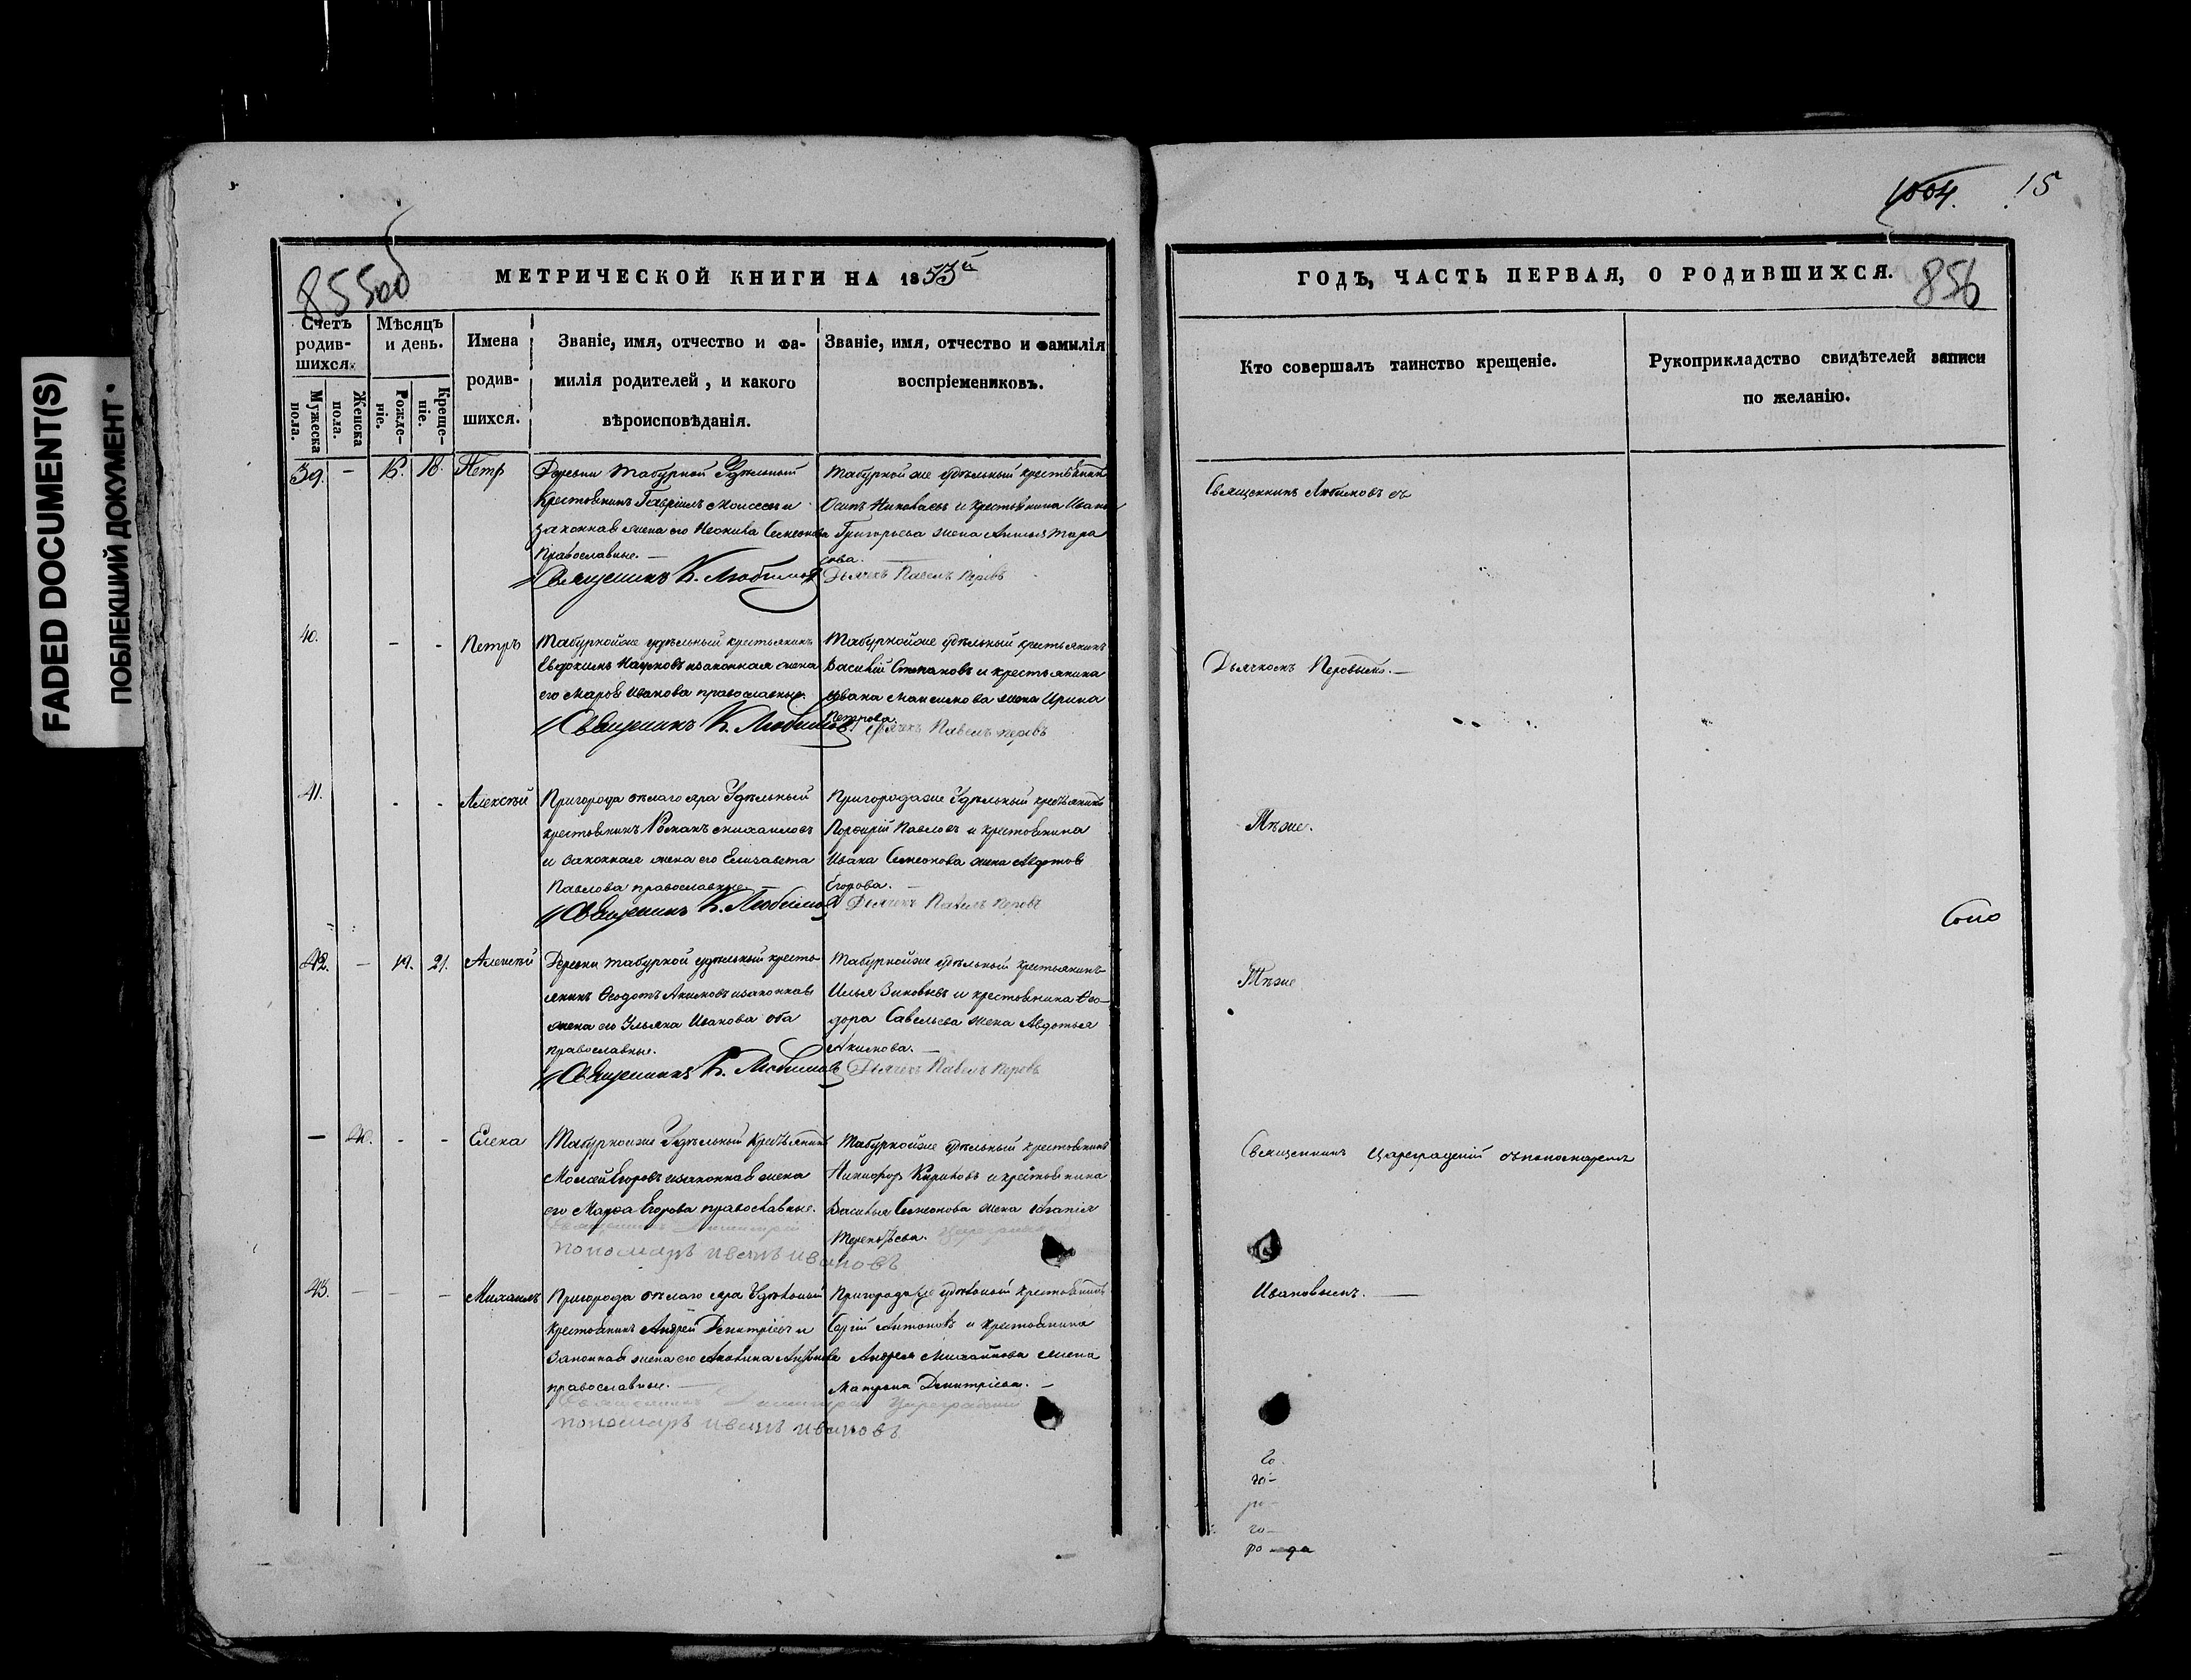 FADED DOCUMENT(S)
ПОБЛЕКШИЙ ДОКУМЕНТ •
855об
МЕТРИЧЕСКОЙ КНИГИ НА 1853й
Счетъ родив-шихся.
Мѣсяцъ и день.
Имена родив-шихся.
Званіе, имя, отчество и фа-
милія родителей, и какого
вѣроисповѣданія.
Званіе, имя, отчество и фамилія
воспріемниковъ.
Мужеска пола.
Женска пола.
Рожде-ніе.
Креще-ніе.
39. — 18. Петръ
Деревни Табурной Удѣльный
крестьянинъ Гавріилъ Моисеевъ и
законная жена его Неонила Семенова
Православные. —
Священникъ К. Любимовъ
Табурной же удѣльный крестьянинъ
Осипъ Николаевъ и крестьянина Ивана
Григорьева жена Анисья Тара
сова.
Дьячекъ Павелъ Перовъ
40. - - Петръ
Табурнойже удѣльный крестьянинъ
Евдокимъ Наумовъ изаконная жена
его Марѳа Иванова православные.
Священникъ К. Любимовъ
Табурнойже удѣльный крестьянинъ
Василій Степановъ и крестьянина
Ивана Максимова жена Ирина
Петрова.
Дьячекъ Павелъ Перовъ
41. - - Алексѣй
Пригорода Бѣлаго яра Удѣльный
крестьянинъ Романъ Михаиловъ
и законная жена его Елизавета
Павлова православные —
Священникъ К. Любимовъ
Пригородаже Удѣльный крестьянинъ
Порфирій Павловъ и крестьянина
Ивана Семенова жена Авдотья
Егорова. —
Дьячекъ Павелъ Перовъ
42. — 19. 21. Алексѣй
Деревни Табурной удѣльный кресть-
янинъ Ѳеодотъ Акимовъ изаконная
жена его Ульяна Иванова оба
православные.
Священникъ К. Любимовъ
Табурнойже удѣльный крестьянинъ
Илья Зиновьевъ и крестьянина Ѳео-
дора Савельева жена Авдотья
Акимова. —
Дьячекъ Павелъ Перовъ
— - - Елена
Табурнойже Удѣльный крестьянинъ
Моисей Егоровъ изаконная жена
его Марѳа Егорова православные.
пономарь Иванъ Ивановъ
Табурнойже удѣльный крестьянинъ
Никифоръ Кириловъ и крестьянина
Василья Семенова жена
Терентьева.
43. — — — Михаилъ
Пригорода Бѣлаго яра Удѣльный
крестьянинъ Андрей Дмитріевъ и
законная жена его Акилина
православные. —
Священникъ Димитрій Цареградскій
пономарь Иванъ Ивановъ
Пригородаже удѣльный крестьянинъ
Сергій Антоновъ и крестьянина
Андрея Михайлова жена
Матрона Димитріева. —
1004. 15
ГОДЪ, ЧАСТЬ ПЕРВАЯ, О РОДИВШИХСЯ.
856
Кто совершалъ таинство крещеніе.
Рукоприкладство свидѣтелей записи
по желанію.
Священникъ Любимовъ съ
Дьячкомъ Перовымъ. —
Тѣже.
Тѣже
Священникъ Цареградскій съпономаремъ
Ивановымъ. —